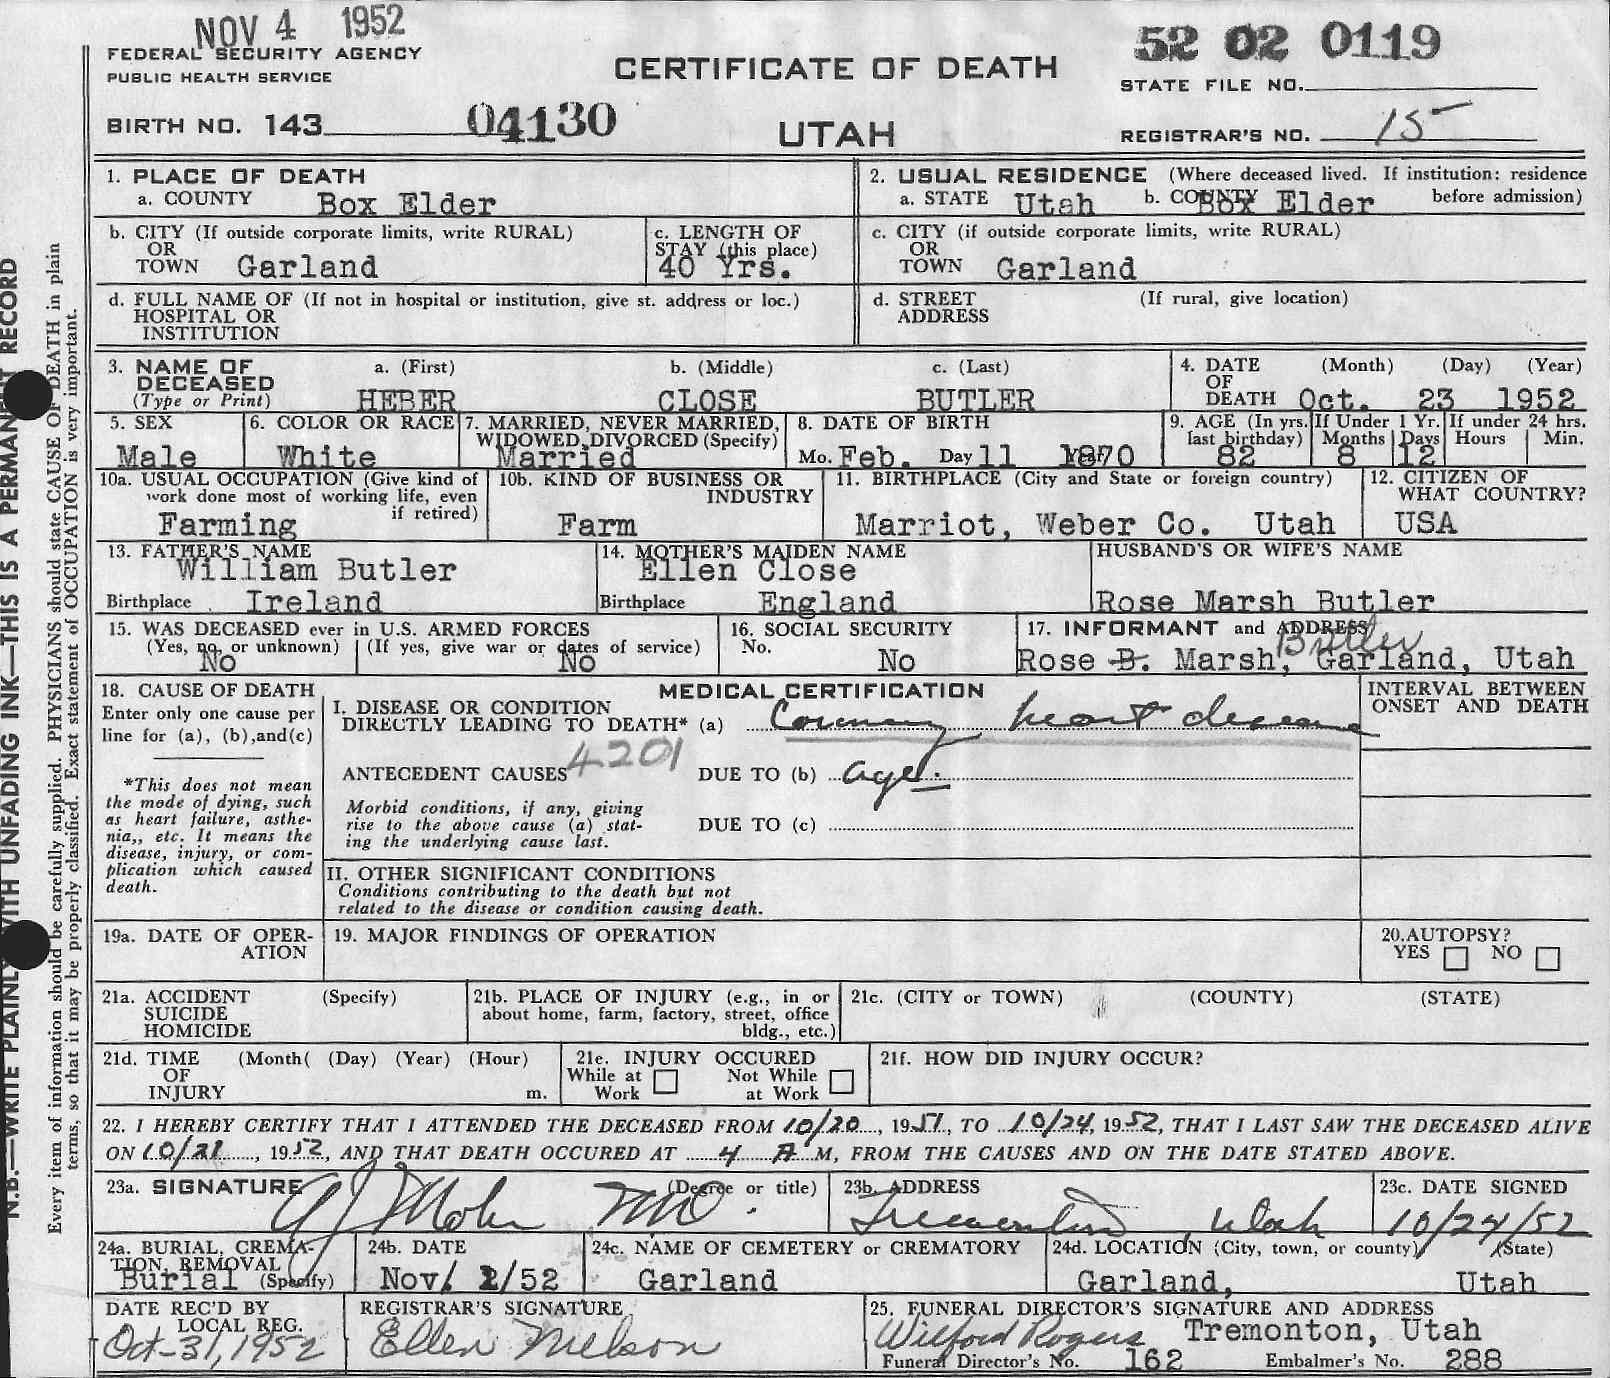 NOV 4 1952
52 02 0119
FEDERAL SECURITY AGENCY
PUBLIC HEALTH SERVICE
CERTIFICATE OF DEATH
STATE FILE NO.
BIRTH NO. 143 04130
UTAH
REGISTRAR'S NO. 15
1. PLACE OF DEATH
a. COUNTY Box Elder
2. USUAL RESIDENCE (Where deceased lived. If institution: residence before admission)
a. STATE Utah b. COUNTY Box Elder
b. CITY (If outside corporate limits, write RURAL)
OR
TOWN Garland
c. LENGTH OF
STAY (this place)
40 Yrs.
c. CITY (if outside corporate limits, write RURAL)
OR
TOWN Garland
d. FULL NAME OF (If not in hospital or institution, give st. address or loc.)
HOSPITAL OR
INSTITUTION
d. STREET (If rural, give location)
ADDRESS
3. NAME OF DECEASED (Type or Print)
a. (First) b. (Middle) c. (Last)
HEBER CLOSE BUTLER
4. DATE OF DEATH (Month) (Day) (Year)
Oct. 23 1952
5. SEX
Male
6. COLOR OR RACE
White
7. MARRIED, NEVER MARRIED,
WIDOWED, DIVORCED (Specify)
Married
8. DATE OF BIRTH
Mo. Feb. Day 11 Year 1870
9. AGE (In yrs. last birthday)
82
If Under 1 Yr. Months Days
8 12
If under 24 hrs. Hours Min.
10a. USUAL OCCUPATION (Give kind of
work done most of working life, even
if retired)
Farming
10b. KIND OF BUSINESS OR
INDUSTRY
Farm
11. BIRTHPLACE (City and State or foreign country)
Marriot, Weber Co. Utah
12. CITIZEN OF
WHAT COUNTRY?
USA
13. FATHER'S NAME
William Butler
Birthplace Ireland
14. MOTHER'S MAIDEN NAME
Ellen Close
Birthplace England
HUSBAND'S OR WIFE'S NAME
Rose Marsh Butler
15. WAS DECEASED ever in U.S. ARMED FORCES
(Yes, no, or unknown) (If yes, give war or dates of service)
No No
16. SOCIAL SECURITY
No.
No
17. INFORMANT and ADDRESS
Butler
Rose B. Marsh, Garland, Utah
18. CAUSE OF DEATH
Enter only one cause per
line for (a), (b),and(c)
*This does not mean
the mode of dying, such
as heart failure, asthe-
nia,, etc. It means the
disease, injury, or com-
plication which caused
death.
MEDICAL CERTIFICATION
INTERVAL BETWEEN
ONSET AND DEATH
I. DISEASE OR CONDITION
DIRECTLY LEADING TO DEATH* (a) Coronary heart disease
4201
ANTECEDENT CAUSES DUE TO (b) age.
Morbid conditions, if any, giving
rise to the above cause (a) stat-
ing the underlying cause last.
DUE TO (c)
II. OTHER SIGNIFICANT CONDITIONS
Conditions contributing to the death but not
related to the disease or condition causing death.
19a. DATE OF OPER-
ATION
19. MAJOR FINDINGS OF OPERATION
20.AUTOPSY?
YES NO
21a. ACCIDENT (Specify)
SUICIDE
HOMICIDE
21b. PLACE OF INJURY (e.g., in or
about home, farm, factory, street, office
bldg., etc.)
21c. (CITY or TOWN) (COUNTY) (STATE)
21d. TIME (Month( (Day) (Year) (Hour)
OF
INJURY m.
21e. INJURY OCCURED
While at Work Not While at Work
21f. HOW DID INJURY OCCUR?
22. I HEREBY CERTIFY THAT I ATTENDED THE DECEASED FROM 10/20, 1951, TO 10/24, 1952, THAT I LAST SAW THE DECEASED ALIVE
ON 10/21, 1952, AND THAT DEATH OCCURED AT 4 A M, FROM THE CAUSES AND ON THE DATE STATED ABOVE.
23a. SIGNATURE (Degree or title)
MD.
23b. ADDRESS
Tremonton Utah
23c. DATE SIGNED
10/24/52
24a. BURIAL, CREMA-
TION, REMOVAL
Burial (Specify)
24b. DATE
Nov. 1/52
24c. NAME OF CEMETERY or CREMATORY
Garland
24d. LOCATION (City, town, or county) (State)
Garland, Utah
DATE REC'D BY
LOCAL REG.
Oct-31, 1952
REGISTRAR'S SIGNATURE
Ellen Nelson
25. FUNERAL DIRECTOR'S SIGNATURE AND ADDRESS
Wilford Rogers Tremonton, Utah
Funeral Director's No. 162 Embalmer's No. 288
N.B.—WRITE PLAINLY WITH UNFADING INK—THIS IS A PERMANENT RECORD
Every item of information should be carefully supplied. PHYSICIANS should state CAUSE OF DEATH in plain
terms, so that it may be properly classified. Exact statement of OCCUPATION is very important.